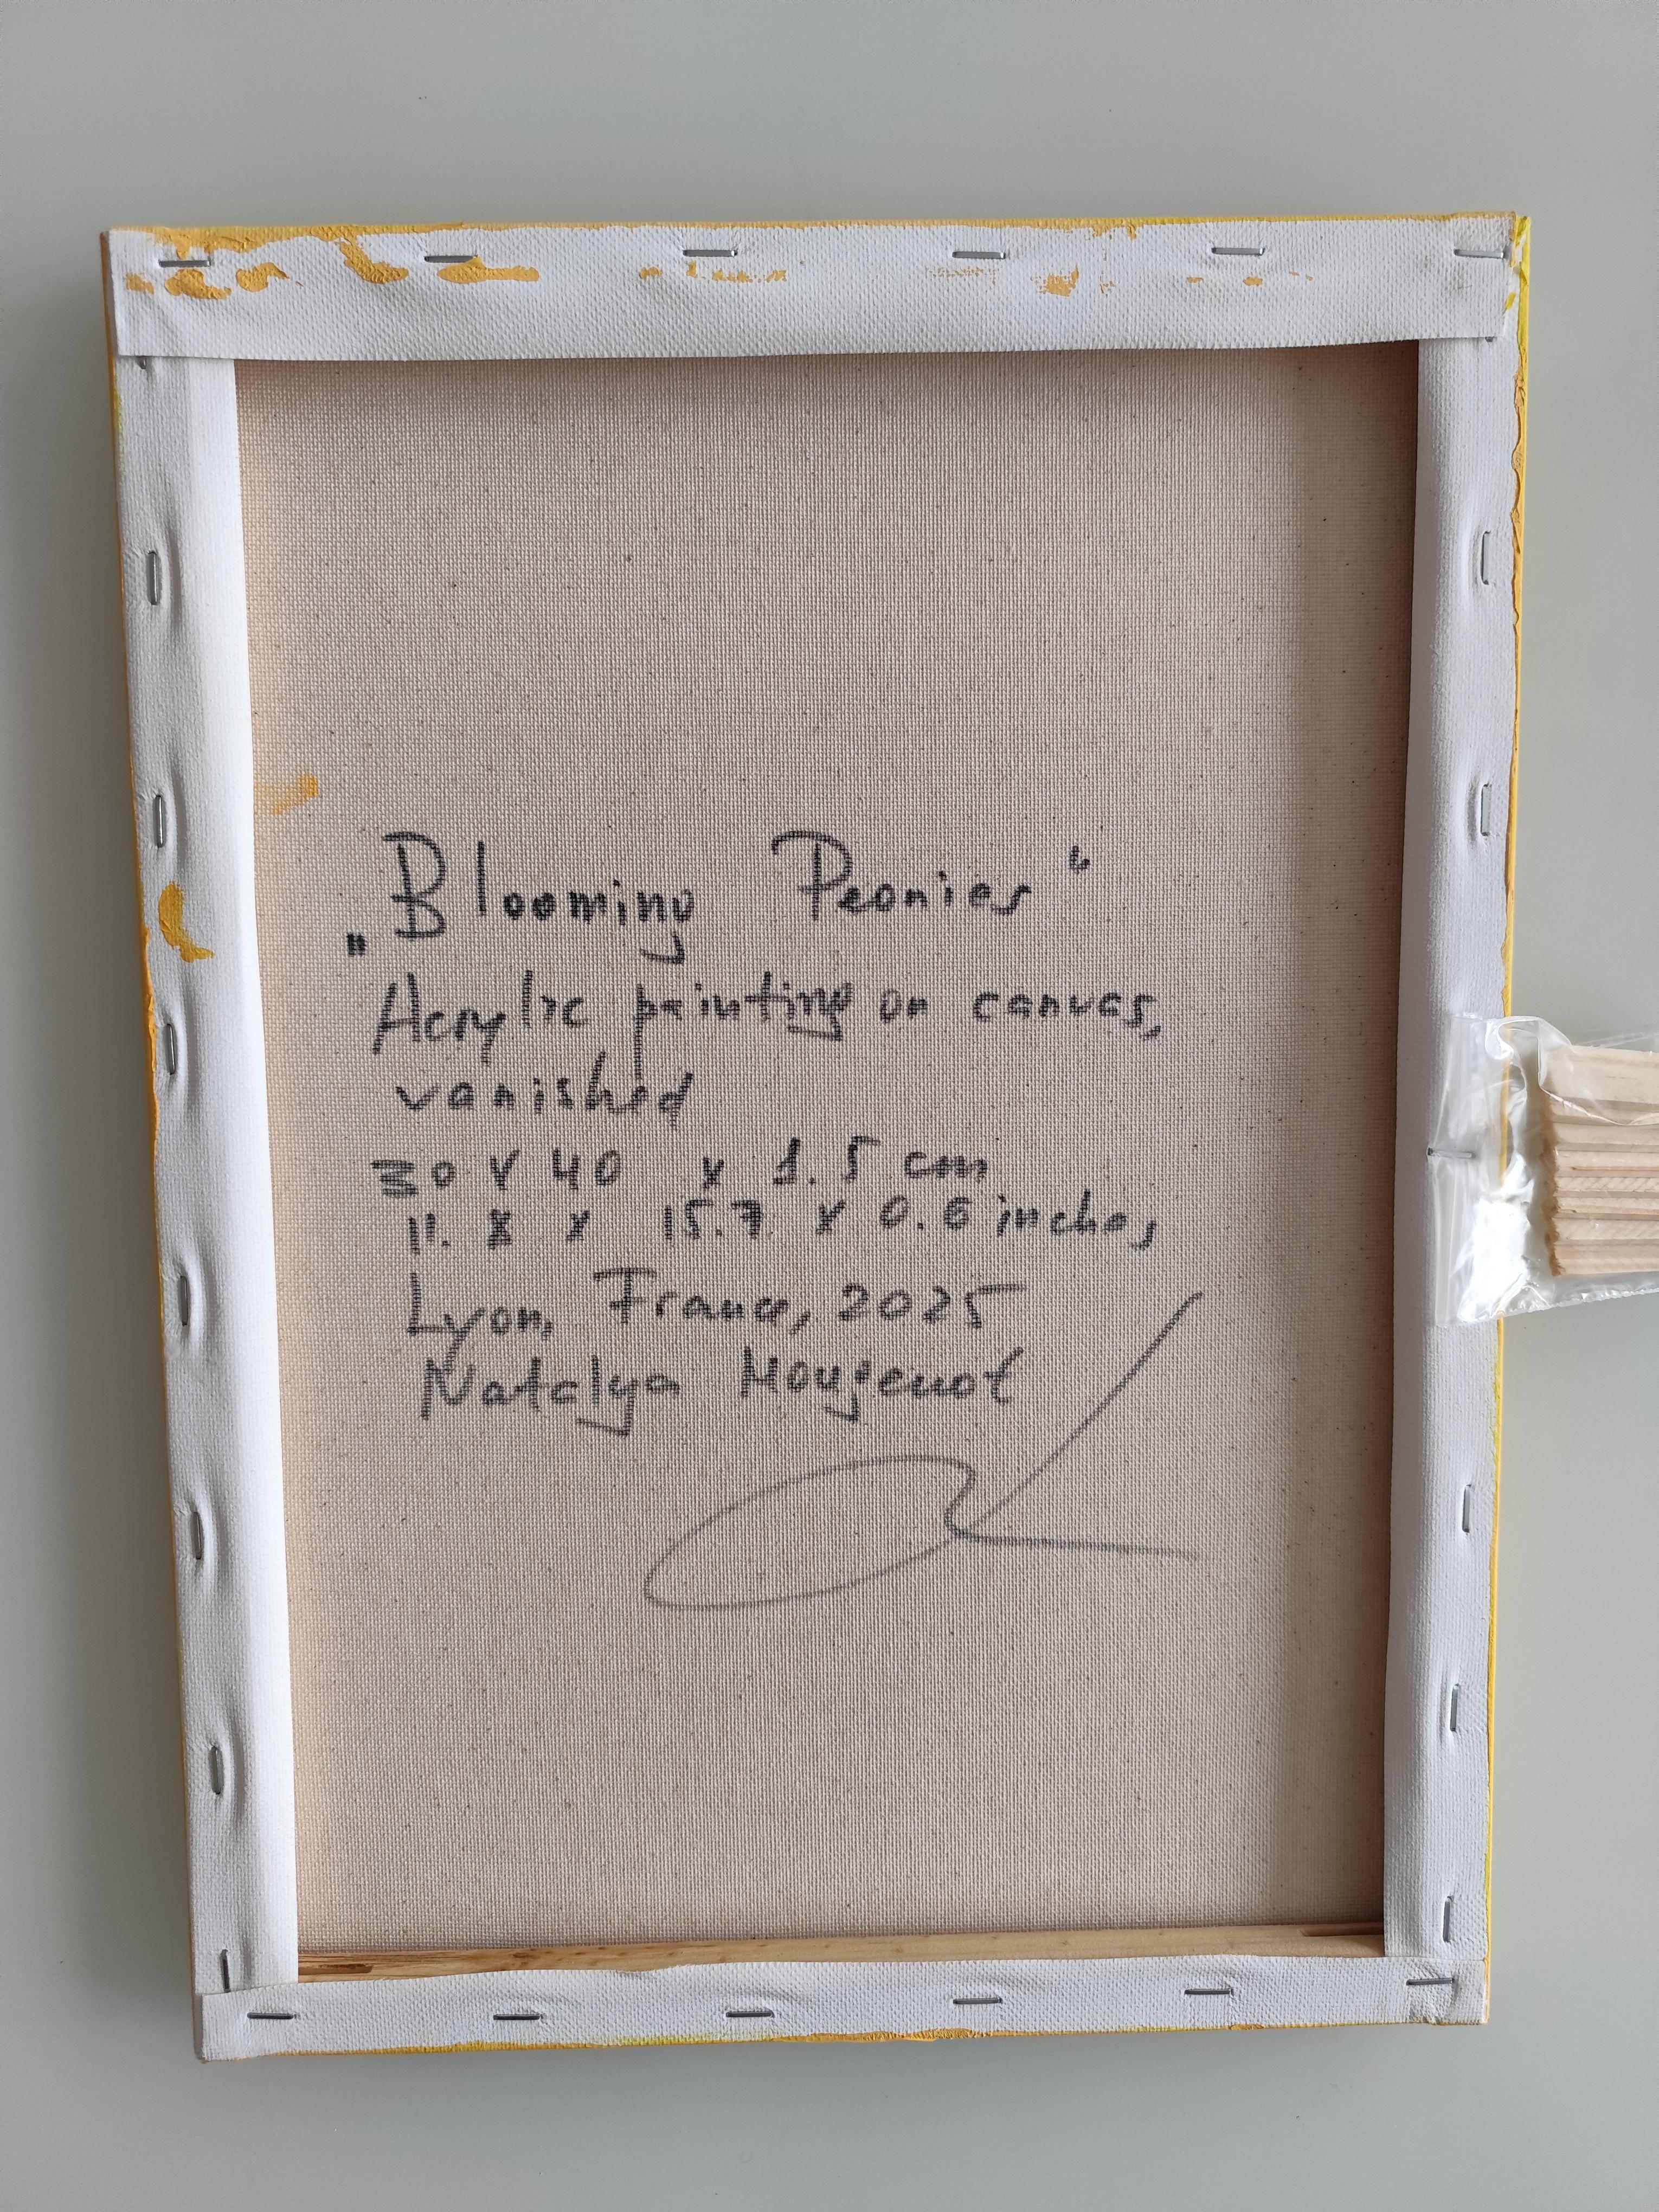 „Blooming Peonies“
Acrylic painting on canvas,
vanished
30 x 40 x 1.5 cm
11.8 x 15.7 x 0.6 inches
Lyon, France, 2025
Natalya Mougenot